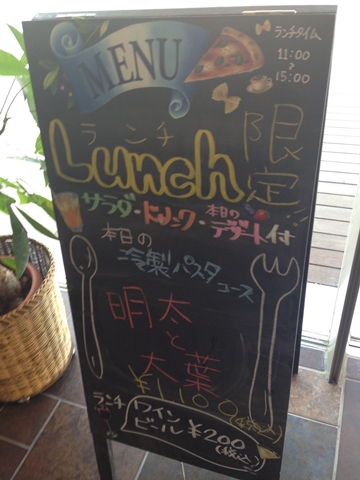 ランチタイム
11:00
〜
15:00
MENU
ランチ
Lunch
限定
サラダ・ドリンク・本日のデザート付
本日の
冷製パスタ
コース
明太
と
大葉
¥1,100(税込)
ランチ
ワイン
ビール ¥200
(税込)